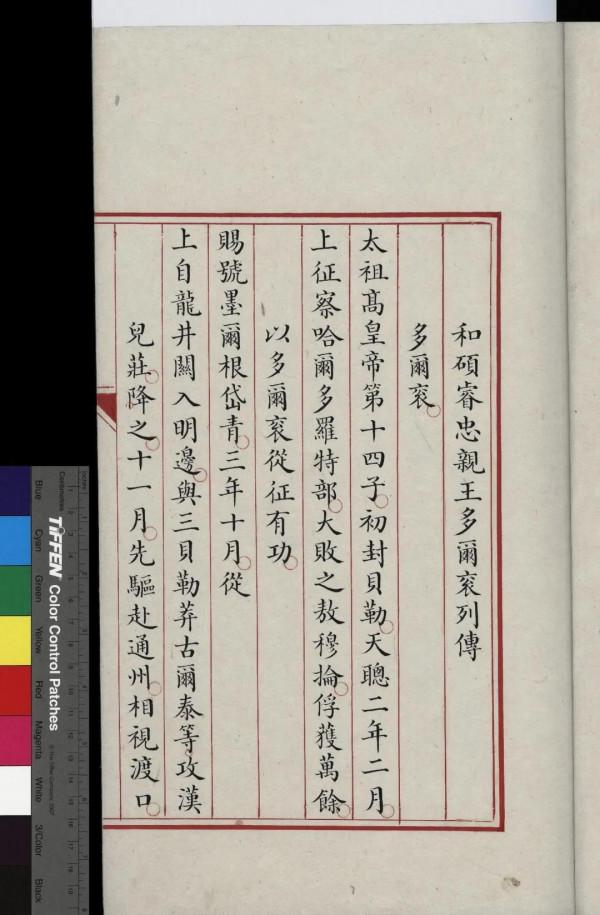 和碩睿忠親王多爾衮列傳
多爾衮
太祖髙皇帝第十四子初封貝勒天聰二年二月
上征察哈爾多羅特部大敗之敖穆掄俘獲萬餘
以多爾衮從征有功
賜號墨爾根岱青三年十月從
上自龍井關入明邊與三貝勒莽古爾泰等攻漢
兒莊降之十一月先驅赴通州相視渡口
TIFFEN Color Control Patches
Centimetres
Inches
Blue
Cyan
Green
Yellow
Red
Magenta
White
3/Color
Black